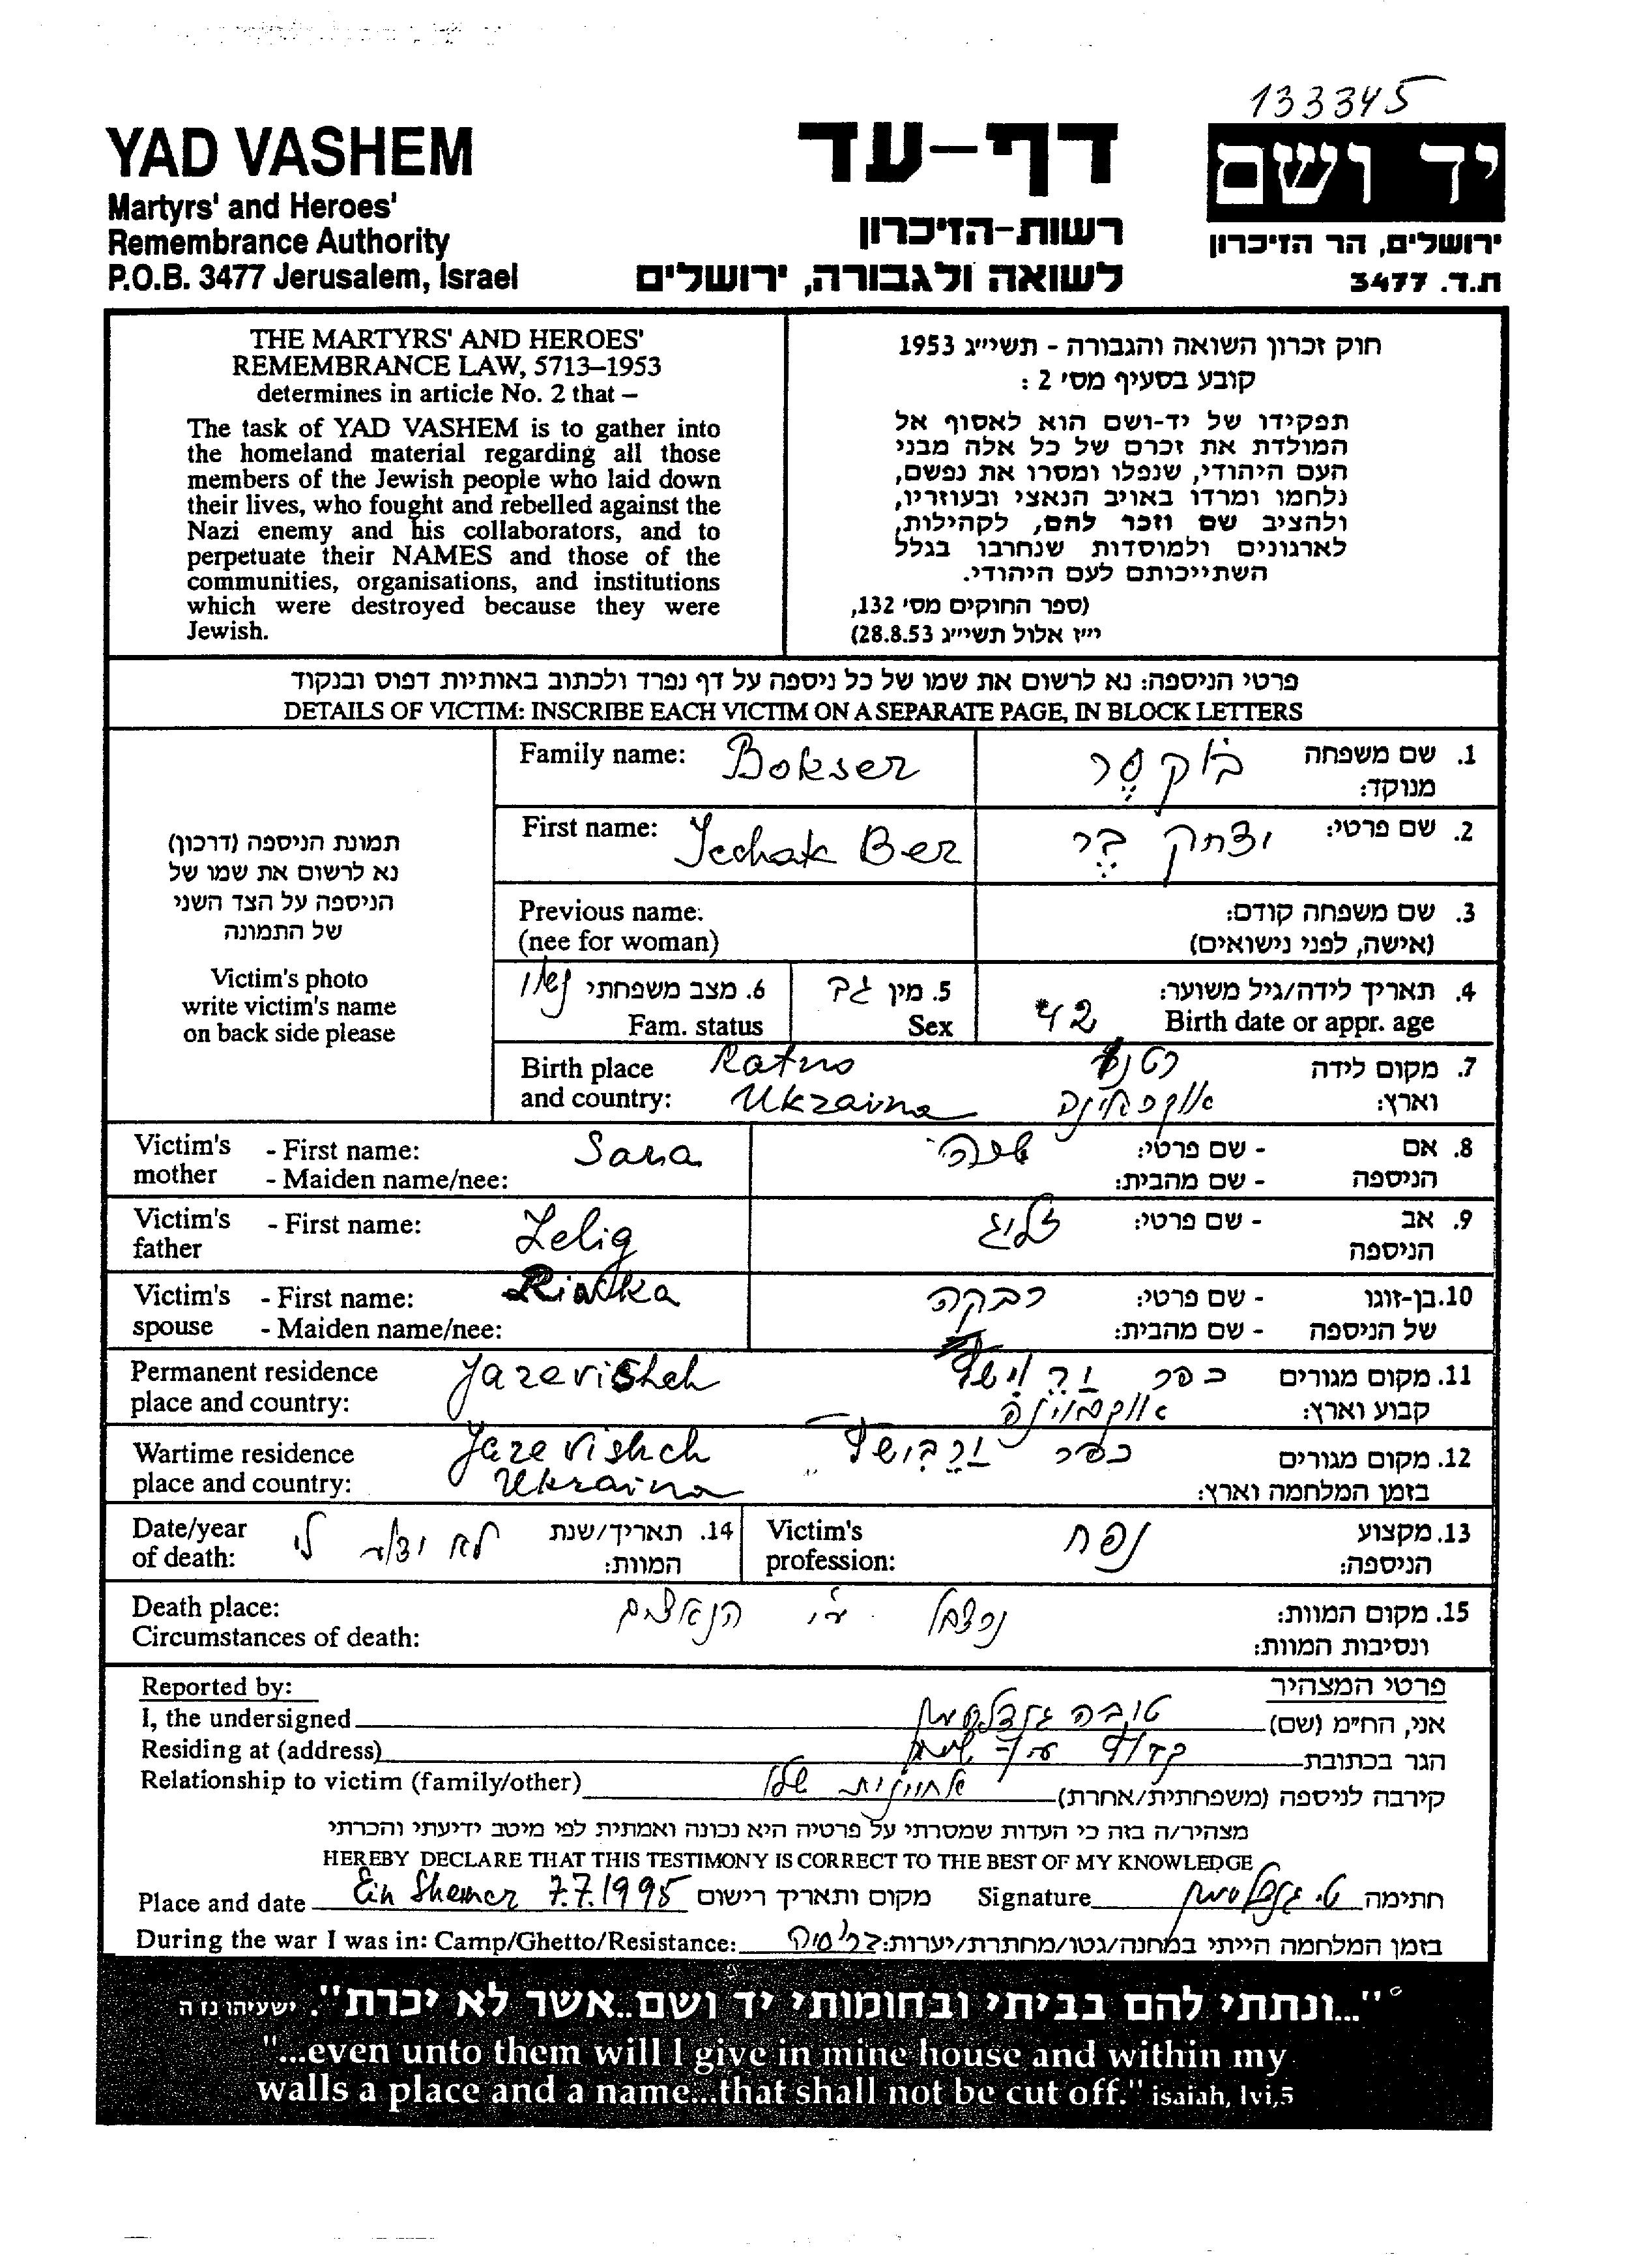 133345
YAD VASHEM
Martyrs' and Heroes'
Remembrance Authority
P.O.B. 3477 Jerusalem, Israel
דף-עד
רשות-הזיכרון
לשואה ולגבורה, ירושלים
יד ושם
ירושלים, הר הזיכרון
ת.ד. 3477
THE MARTYRS' AND HEROES'
REMEMBRANCE LAW, 5713–1953
determines in article No. 2 that –
The task of YAD VASHEM is to gather into
the homeland material regarding all those
members of the Jewish people who laid down
their lives, who fought and rebelled against the
Nazi enemy and his collaborators, and to
perpetuate their NAMES and those of the
communities, organisations, and institutions
which were destroyed because they were
Jewish.
חוק זכרון השואה והגבורה - תשי״ג 1953
קובע בסעיף מס׳ 2 :
תפקידו של יד-ושם הוא לאסוף אל
המולדת את זכרם של כל אלה מבני
העם היהודי, שנפלו ומסרו את נפשם,
נלחמו ומרדו באויב הנאצי ובעוזריו,
ולהציב שם וזכר להם, לקהילות,
לארגונים ולמוסדות שנחרבו בגלל
השתייכותם לעם היהודי.
(ספר החוקים מס׳ 132,
י״ז אלול תשי״ג 28.8.53)
פרטי הניספה: נא לרשום את שמו של כל ניספה על דף נפרד ולכתוב באותיות דפוס ובנקוד
DETAILS OF VICTIM: INSCRIBE EACH VICTIM ON A SEPARATE PAGE, IN BLOCK LETTERS
תמונת הניספה (דרכון)
נא לרשום את שמו של
הניספה על הצד השני
של התמונה
Victim's photo
write victim's name
on back side please
Family name: Bokser
בוֹקסֶר
1. שם משפחה
מנוקד:
First name: Icchak Ber
יצחק בֶּר
2. שם פרטי:
Previous name:
(nee for woman)
3. שם משפחה קודם:
(אישה, לפני נישואים)
6. מצב משפחתי נשוי
Fam. status
5. מין גבר
Sex
4. תאריך לידה/גיל משוער:
Birth date or appr. age 42
Birth place Ratno
and country: Ukraina
7. מקום לידה רטנו
וארץ: אוקראינה
Victim's - First name: Sara
mother - Maiden name/nee:
8. אם - שם פרטי: שרה
הניספה - שם מהבית:
Victim's - First name: Zelig
father
9. אב - שם פרטי: זליג
הניספה
Victim's - First name: Riwka
spouse - Maiden name/nee:
10. בן-זוגו - שם פרטי: רבקה
של הניספה - שם מהבית:
Permanent residence Jarevishch
place and country:
11. מקום מגורים כפר
קבוע וארץ: אוקראינה
Wartime residence Jarevishch
place and country: Ukraina
12. מקום מגורים כפר
בזמן המלחמה וארץ:
Date/year
of death:
14. תאריך/שנת לא ידוע לי
המוות:
Victim's
profession:
13. מקצוע נפח
הניספה:
Death place:
Circumstances of death:
15. מקום המוות: נרצח ע״י הנאצים
ונסיבות המוות:
Reported by:
I, the undersigned
Residing at (address)
Relationship to victim (family/other)
פרטי המצהיר
אני, הח״מ (שם) טובה
הגר בכתובת
קירבה לניספה (משפחתית/אחרת) אחיינית שלו
מצהיר/ה בזה כי העדות שמסרתי על פרטיה היא נכונה ואמתית לפי מיטב ידיעתי והכרתי
HEREBY DECLARE THAT THIS TESTIMONY IS CORRECT TO THE BEST OF MY KNOWLEDGE
Place and date Ein Shemer 7.7.1995 מקום ותאריך רישום
Signature חתימה
During the war I was in: Camp/Ghetto/Resistance:
בזמן המלחמה הייתי במחנה/גטו/מחתרת/יערות: ברוסיה
"...ונתתי להם בביתי ובחומותי יד ושם...אשר לא יכרת". ישעיהו נו ה
"...even unto them will I give in mine house and within my
walls a place and a name...that shall not be cut off." isaiah, lvi,5